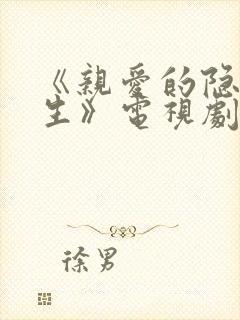 《親愛的隐
生》電視劇
徐男